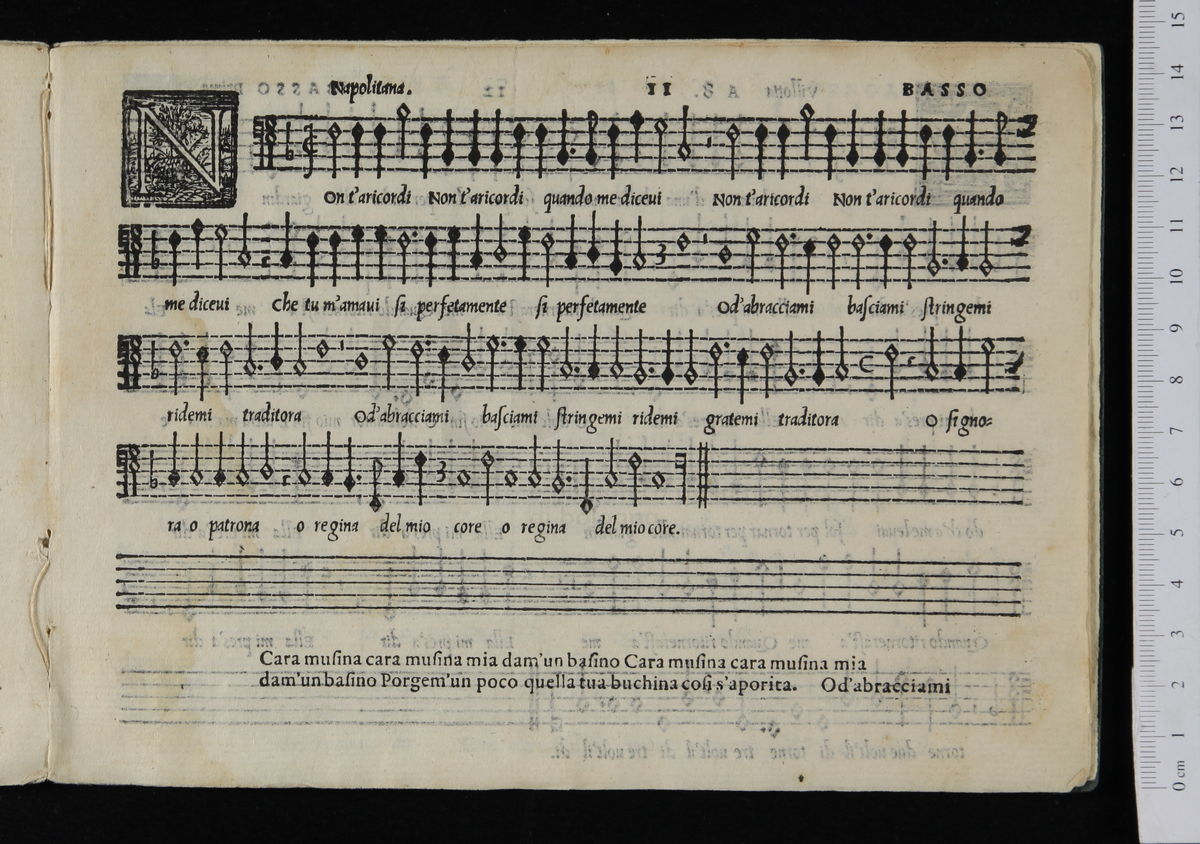 Napolitana. 11 BASSO
NOn t'aricordi Non t'aricordi quando me diceui Non t'aricordi Non t'aricordi quando
me diceui Che tu m'amaui ſi perfetamente ſi perfetamente Od'abracciami baſciami ſtringemi
ridemi traditora Od'abracciami baſciami ſtringemi ridemi gratemi traditora O ſigno=
ra o patrona o regina del mio core o regina del mio core.
Cara muſina cara muſina mia dam'un baſino Cara muſina cara muſina mia
dam'un baſino Porgem'un poco quella tua buchina coſi s'aporita. Od'abracciami
15
14
13
12
11
10
9
8
7
6
5
4
3
2
1
0 cm